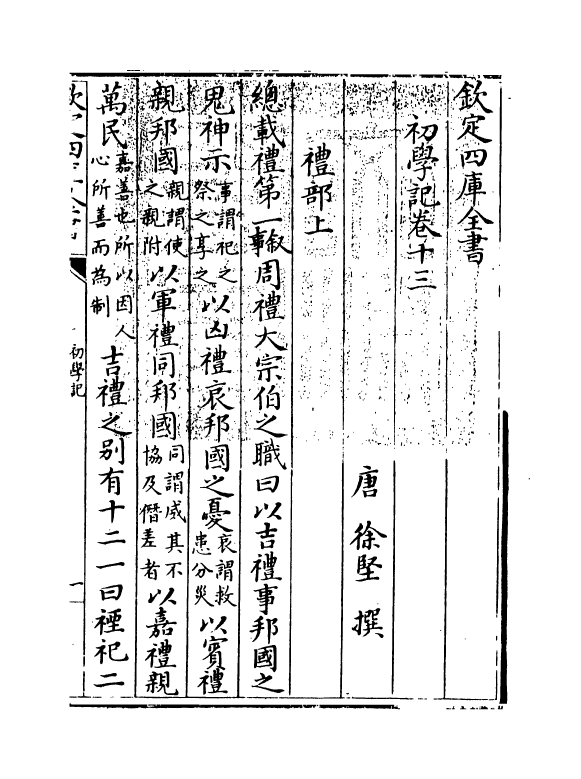 欽定四庫全書
初學記卷十三
唐 徐堅 撰
禮部上
總載禮第一敘事周禮大宗伯之職曰以吉禮事邦國之
鬼神示事謂祀之祭之享之以凶禮哀邦國之憂哀謂救患分災以賓禮
親邦國親謂使之親附以軍禮同邦國同謂威其不協及僭差者以嘉禮親
萬民嘉善也所以因人心所善而為制吉禮之别有十二一曰禋祀二
初學記
一